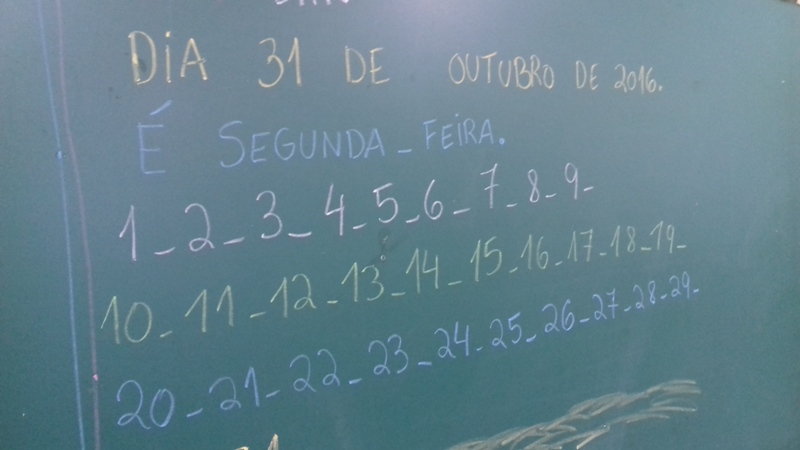 DIA 31 DE OUTUBRO DE 2016.
É SEGUNDA-FEIRA.
1-2-3-4-5-6-7-8-9-
10-11-12-13-14-15-16-17-18-19-
20-21-22-23-24-25-26-27-28-29-